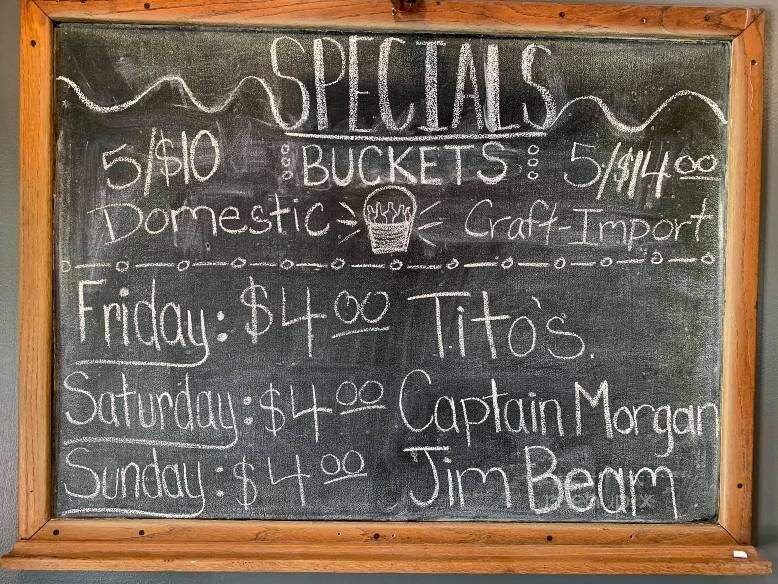 SPECIALS
5/$10 BUCKETS 5/$14.00
Domestic Craft-Import
Friday: $4.00 Tito's.
Saturday: $4.00 Captain Morgan
Sunday: $4.00 Jim Beam